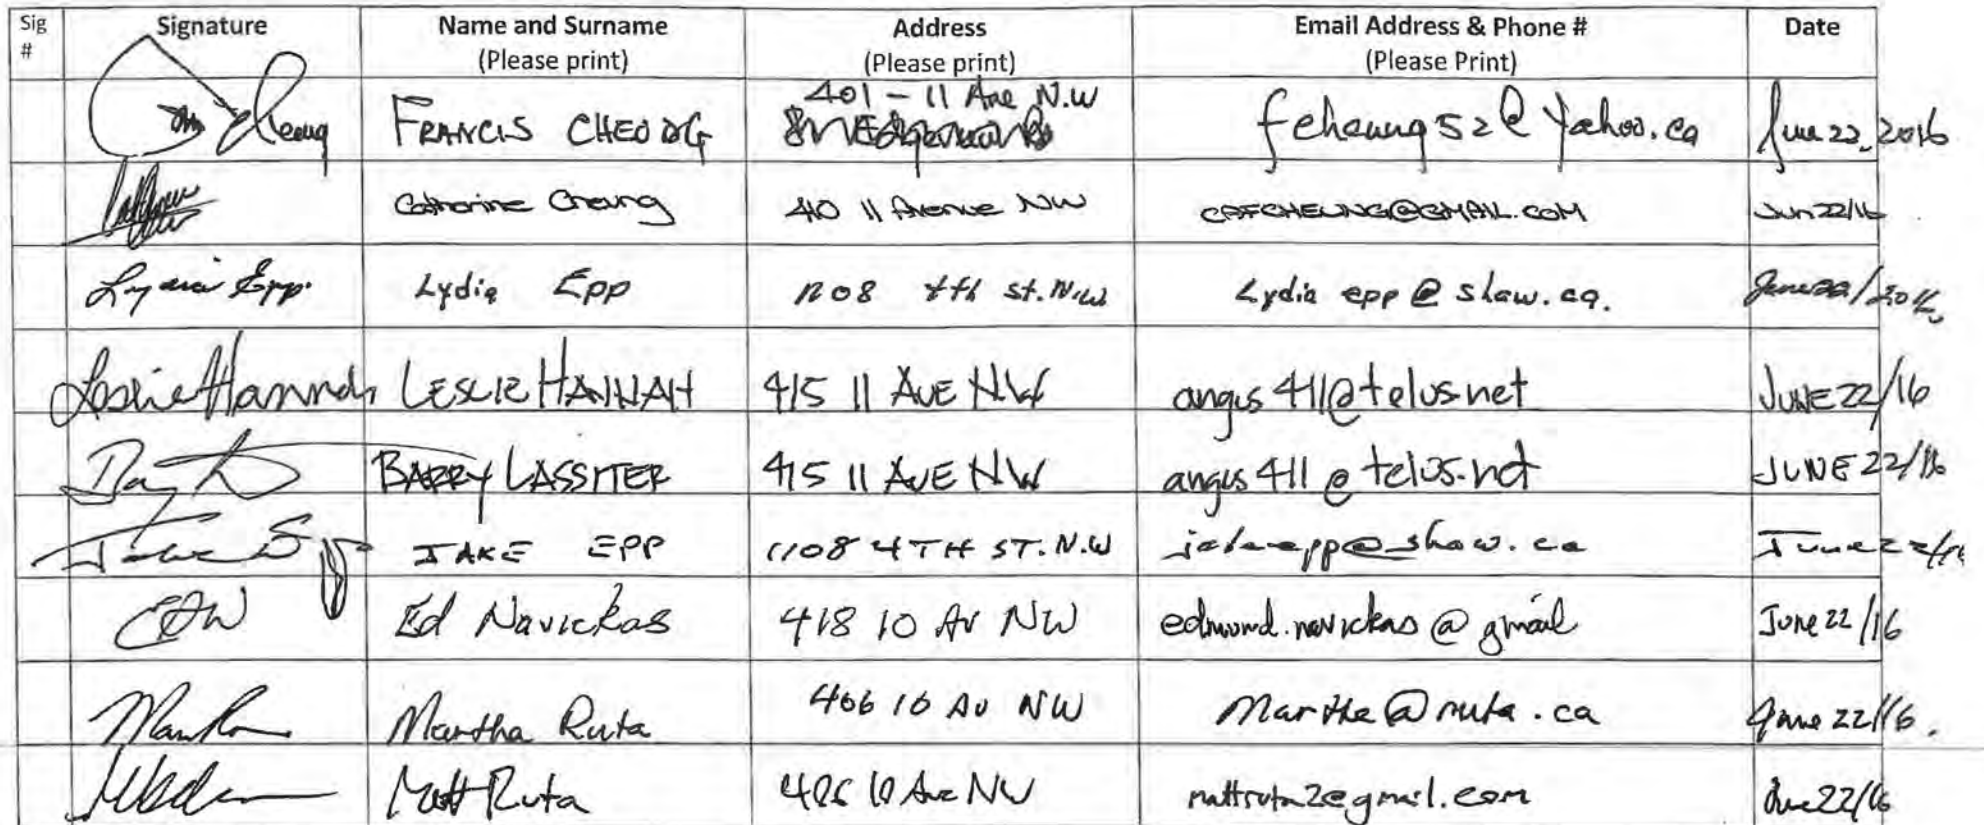 Sig # Signature Name and Surname (Please print) Address (Please print) Email Address & Phone # (Please Print) Date
Cheung FRANCIS CHEUNG 401 - 11 Ave N.W fcheung52@yahoo.ca June 22, 2016
Catharine Cheung 410 11 Avenue NW CAFCHEUNG@GMAIL.COM Jun 22/16
Lydia Epp. Lydia Epp 1108 4th St. N.W Lydia epp @ shaw.ca. June 22/2016
Leslie Hannah LESLIE HANNAH 415 11 AVE NW angus411@telus.net JUNE 22/16
BARRY LASSITER 415 11 AVE NW angus411@telus.net JUNE 22/16
JAKE EPP 1108 4TH ST. N.W jakeepp@shaw.ca June 22/16
Ed Navickas 418 10 Av NW edmund.navickas@gmail June 22/16
Martha Ruta 406 10 Av NW Martha@ruta.ca June 22/16.
Matt Ruta 406 10 Ave NW mattruta2@gmail.com June 22/16